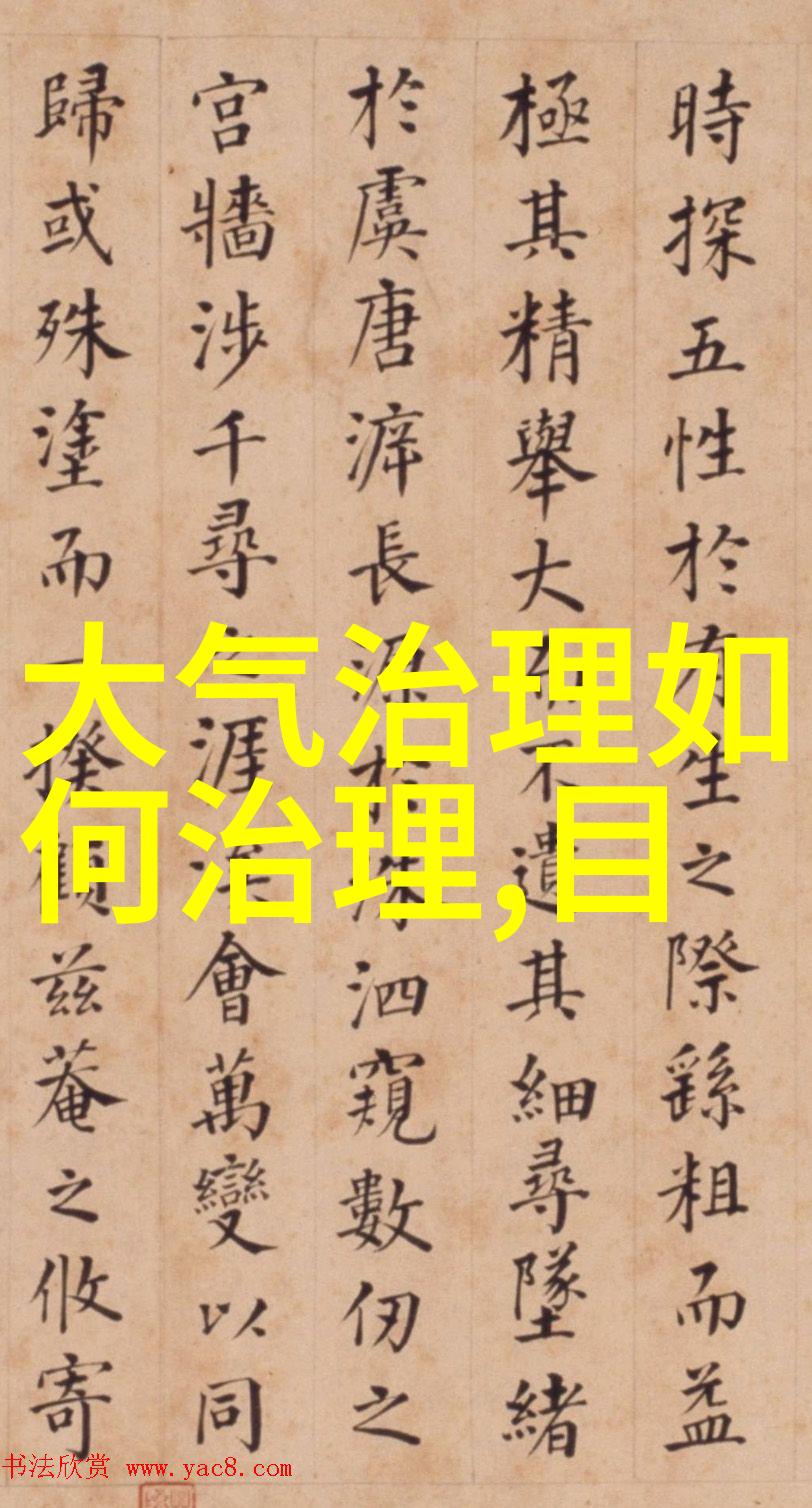 時探五性於有生之際繇粗而益
極其精舉大不遺其細尋墜緒
於虞唐長源於洙泗窺數仞之
宮牆涉千尋之涯涘會萬變以同
歸或殊塗而一揆顧茲菴之攸寄
大气治理如
何治理,目
书法欣赏 www.yac8.com